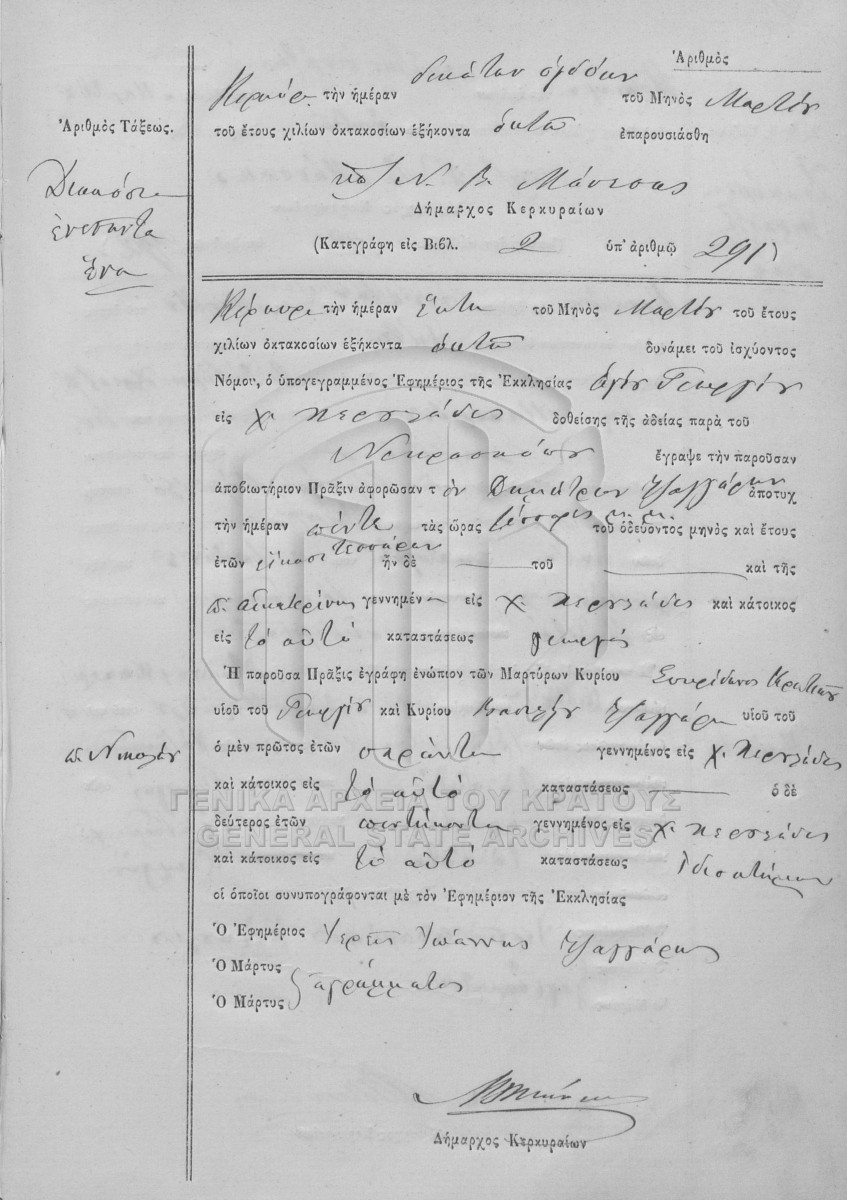 Ἀριθμὸς
Κέρκυρα τὴν ἡμέραν δεκάτην ὀγδόην τοῦ Μηνὸς Μαρτίου
Ἀριθμὸς Τάξεως.
τοῦ ἔτους χιλίων ὀκτακοσίων ἑξήκοντα ὀκτὼ ἐπαρουσιάσθη
Διακόσια
ἐνενῆντα
ἕνα
Ν. Β. Μάνεσης
Δήμαρχος Κερκυραίων
(Κατεγράφη εἰς Βιβλ. 2 ὑπ' ἀριθμῷ 291)
Κέρκυρα τὴν ἡμέραν ἕκτη τοῦ Μηνὸς Μαρτίου τοῦ ἔτους
χιλίων ὀκτακοσίων ἑξήκοντα ὀκτὼ δυνάμει τοῦ ἰσχύοντος
Νόμου, ὁ ὑπογεγραμμένος Ἐφημέριος τῆς Ἐκκλησίας Ἁγίου Γεωργίου
εἰς χ. Περουλάδες δοθείσης τῆς ἀδείας παρὰ τοῦ
Νεκροσκόπου ἔγραψε τὴν παροῦσαν
ἀποβιωτήριον Πρᾶξιν ἀφορῶσαν τ ὸν Δημήτριον Τζαγγάρην ἀποτυχ
τὴν ἡμέραν πέντε τὰς ὥρας τέσσαρις μ. μ. τοῦ ὁδεύοντος μηνὸς καὶ ἔτους
ἐτῶν εἴκοσι τεσσάρων ἦν δὲ τοῦ καὶ τῆς
π. Αἰκατερίνης γεννημέν εἰς χ. Περουλάδες καὶ κάτοικος
εἰς τὸ αὐτὸ καταστάσεως γεωργός
Ἡ παροῦσα Πρᾶξις ἐγράφη ἐνώπιον τῶν Μαρτύρων Κυρίου Σπυρίδωνος
υἱοῦ τοῦ Γεωργίου καὶ Κυρίου Βασιλείου Τζαγγάρη υἱοῦ τοῦ
π. Νικολάου
ὁ μὲν πρῶτος ἐτῶν σαράντα γεννημένος εἰς χ. Περουλάδες
καὶ κάτοικος εἰς τὸ αὐτὸ καταστάσεως ὁ δὲ
ΓΕΝΙΚΑ ΑΡΧΕΙΑ ΤΟΥ ΚΡΑΤΟΥΣ
δεύτερος ἐτῶν πεντήκοντα γεννημένος εἰς χ. Περουλάδες
GENERAL STATE ARCHIVES
καὶ κάτοικος εἰς τὸ αὐτὸ καταστάσεως
οἱ ὁποῖοι συνυπογράφονται μὲ τὸν Ἐφημέριον τῆς Ἐκκλησίας
Ὁ Ἐφημέριος Ἱερεὺς Ἰωάννης Τζαγγάρης
Ὁ Μάρτυς
ἀγράμματος
Ὁ Μάρτυς
Δήμαρχος Κερκυραίων